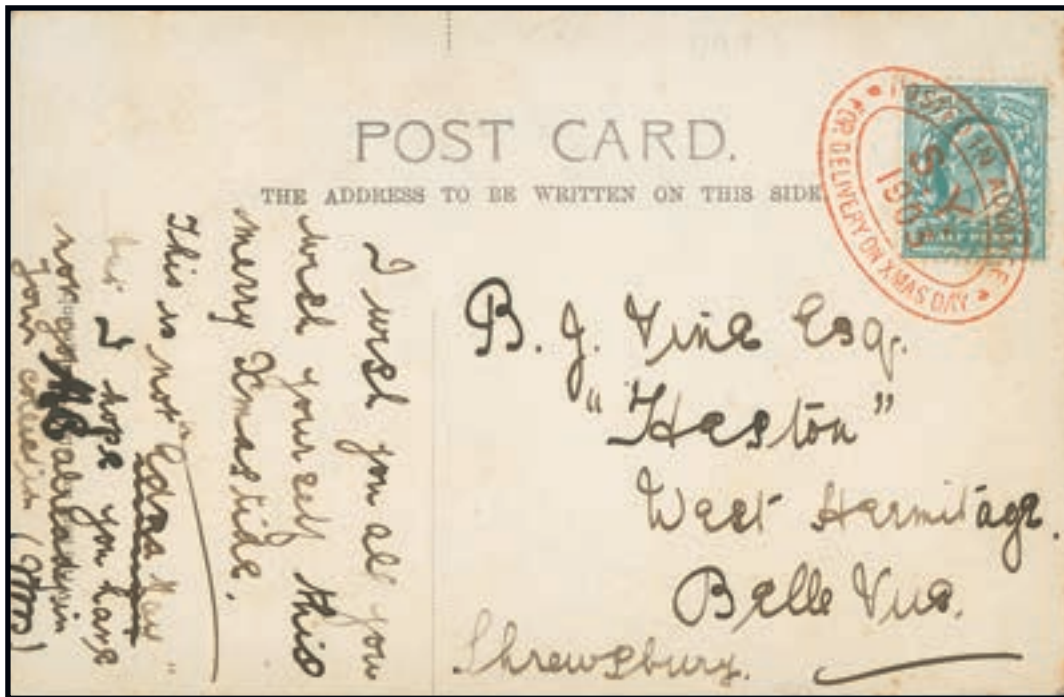 POST CARD.
THE ADDRESS TO BE WRITTEN ON THIS SIDE
POSTED IN ADVANCE
FOR DELIVERY ON XMAS DAY
S.Y
1905
HALF PENNY
I wish you all you
wish yourself this
merry Xmas tide.
This is not
I hope you have
not got already in
your collect'n
B. J. Vine Esq.
"Heston"
West Hermitage.
Belle Vue.
Shrewsbury.